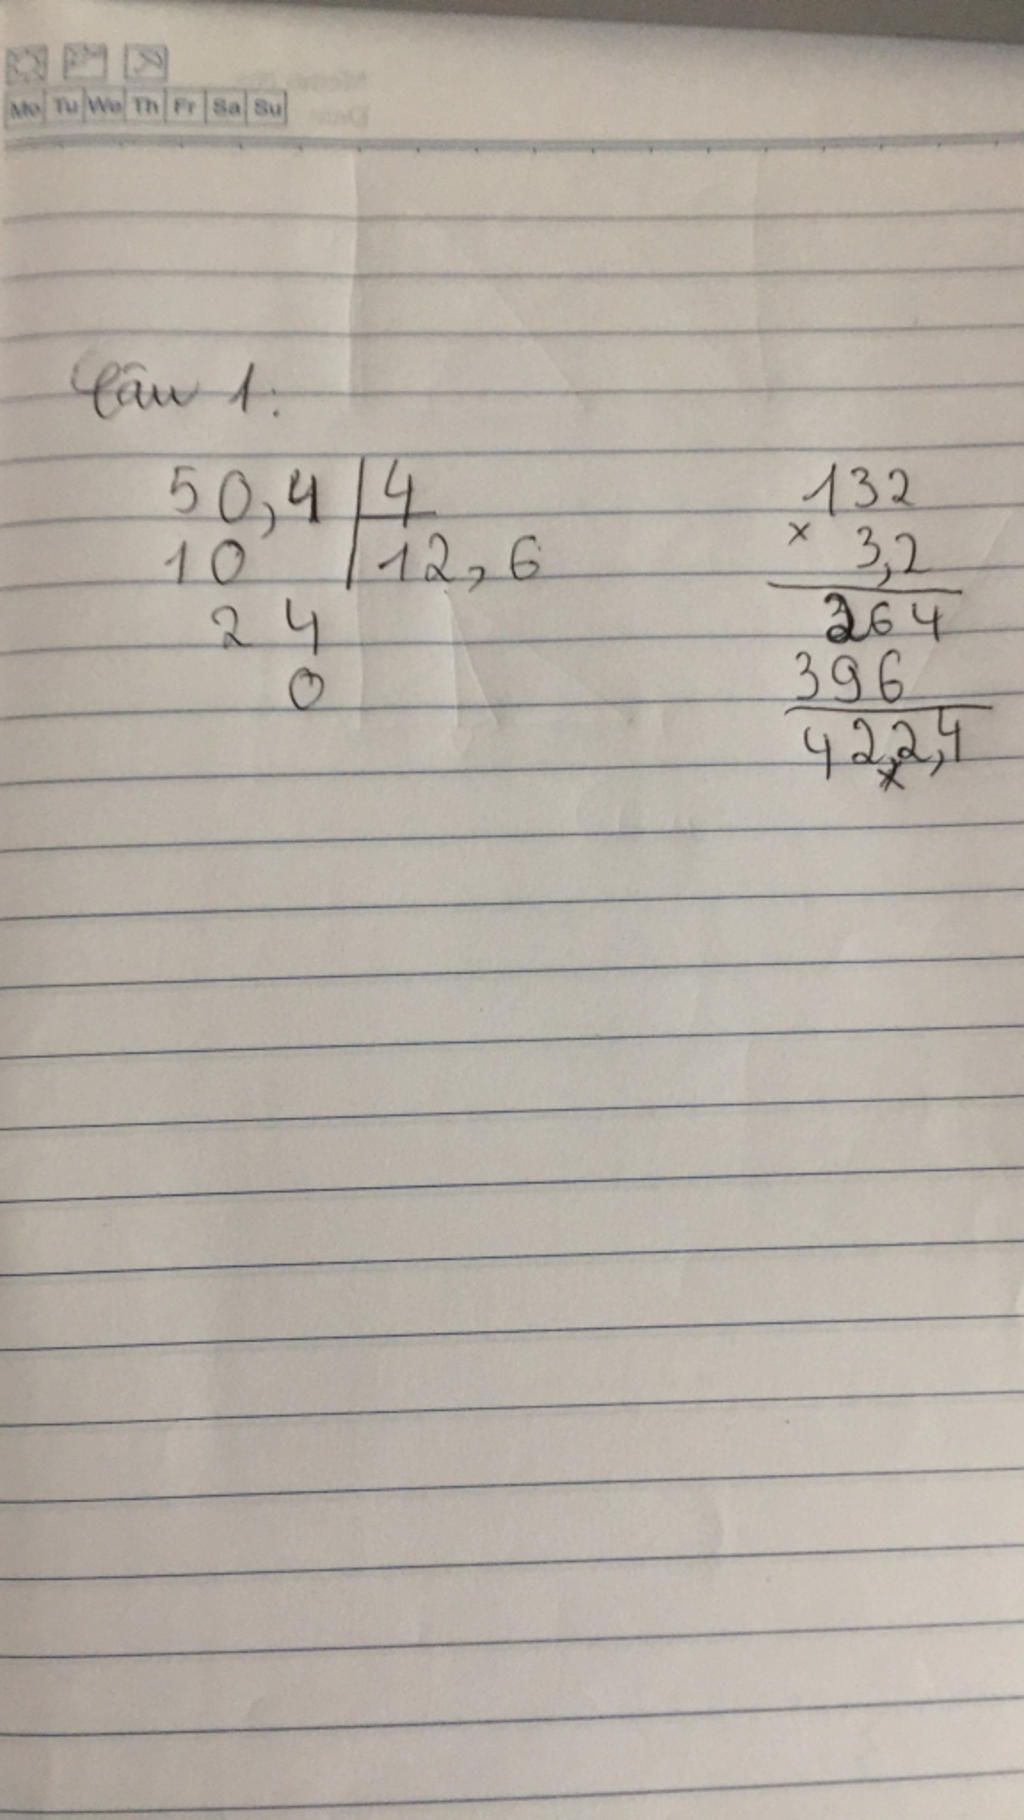 Mo Tu We Th Fr Sa Su
Câu 1:
50,4 | 4
10 | 12,6
24
0
132
× 3,2
264
396
422,4